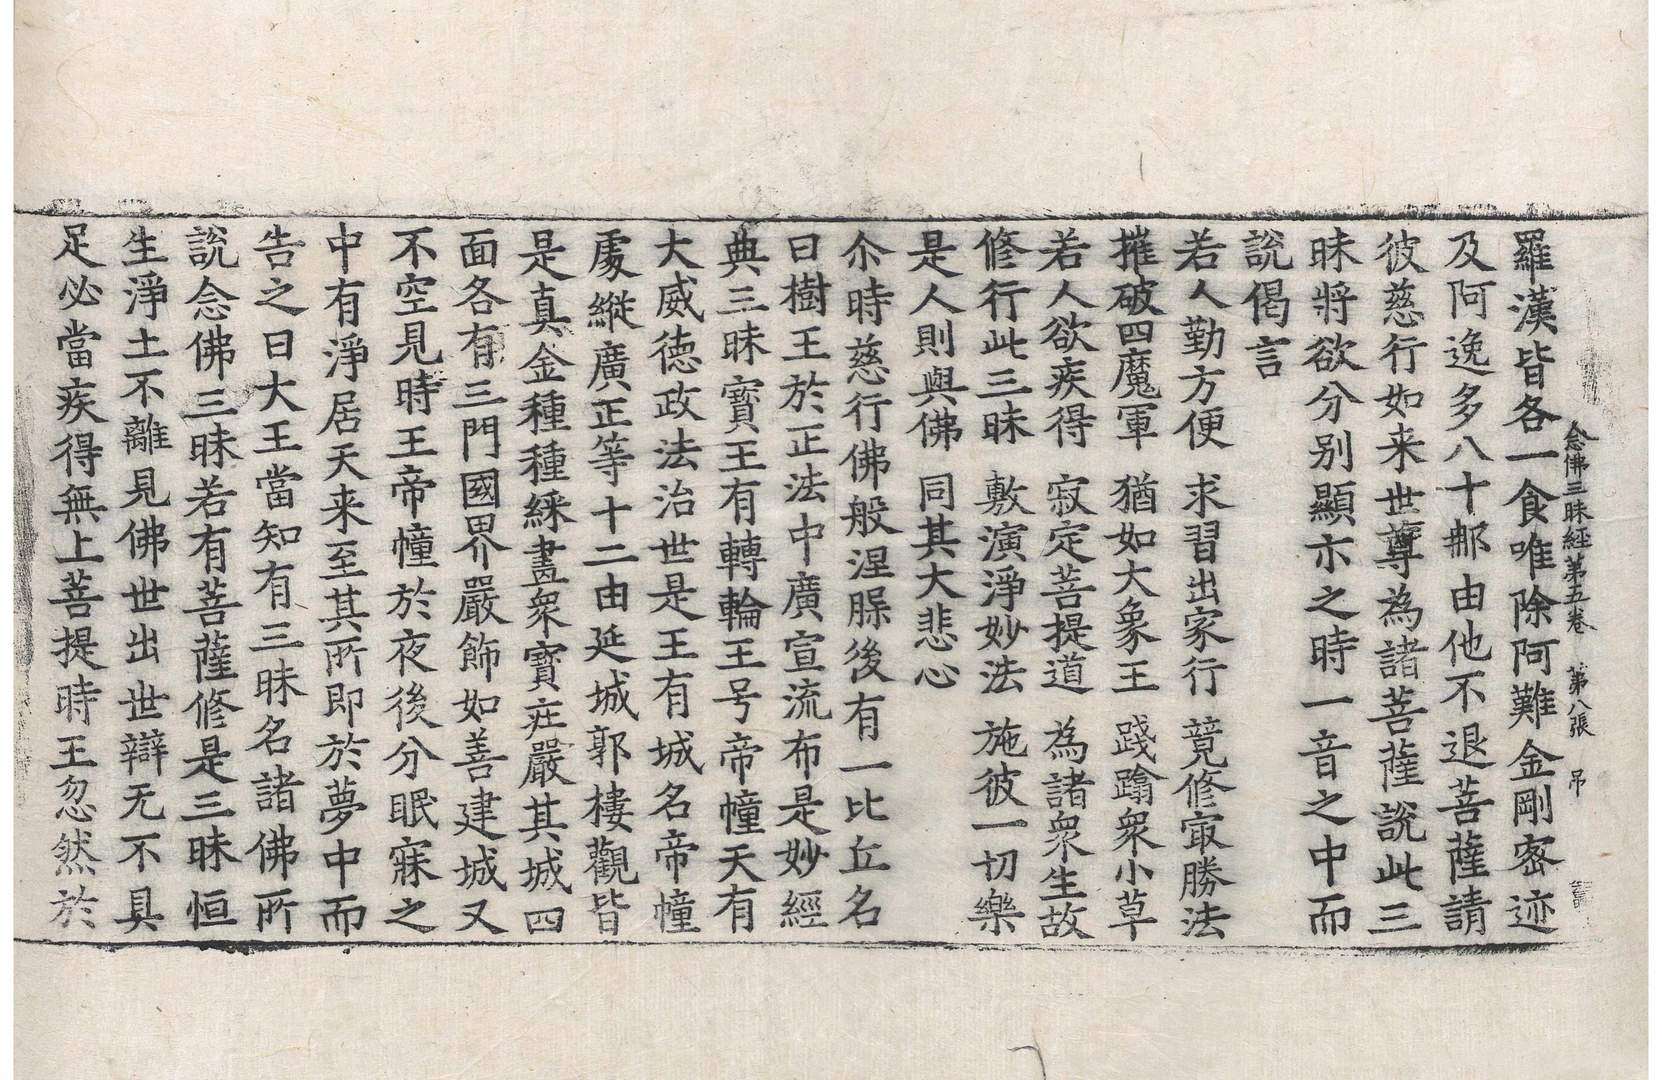 念佛三昧經第五卷　第八張　弔
羅漢皆各一食唯除阿難金剛密迹
及阿逸多八十那由他不退菩薩請
彼慈行如来世尊為諸菩薩說此三
昧將欲分别顯示之時一音之中而
說偈言
若人勤方便　求習出家行　竟修㝡勝法
摧破四魔軍　猶如大象王　踐蹹衆小草
若人欲疾得　寂定菩提道　為諸衆生故
修行此三昧　敷演淨妙法　施彼一切樂
是人則與佛　同其大悲心
尒時慈行佛般涅𦞅後有一比丘名
曰樹王於正法中廣宣流布是妙經
典三昧寶王有轉輪王号帝幢天有
大威德政法治世是王有城名帝幢
處縱廣正等十二由延城郭樓觀皆
是真金種種綵畫衆寶庄嚴其城四
面各有三門國界嚴飾如善建城又
不空見時王帝幢於夜後分眠寐之
中有淨居天来至其所即於夢中而
告之曰大王當知有三昧名諸佛所
說念佛三昧若有菩薩修是三昧恒
生淨土不離見佛世出世辯无不具
足必當疾得無上菩提時王忽然於